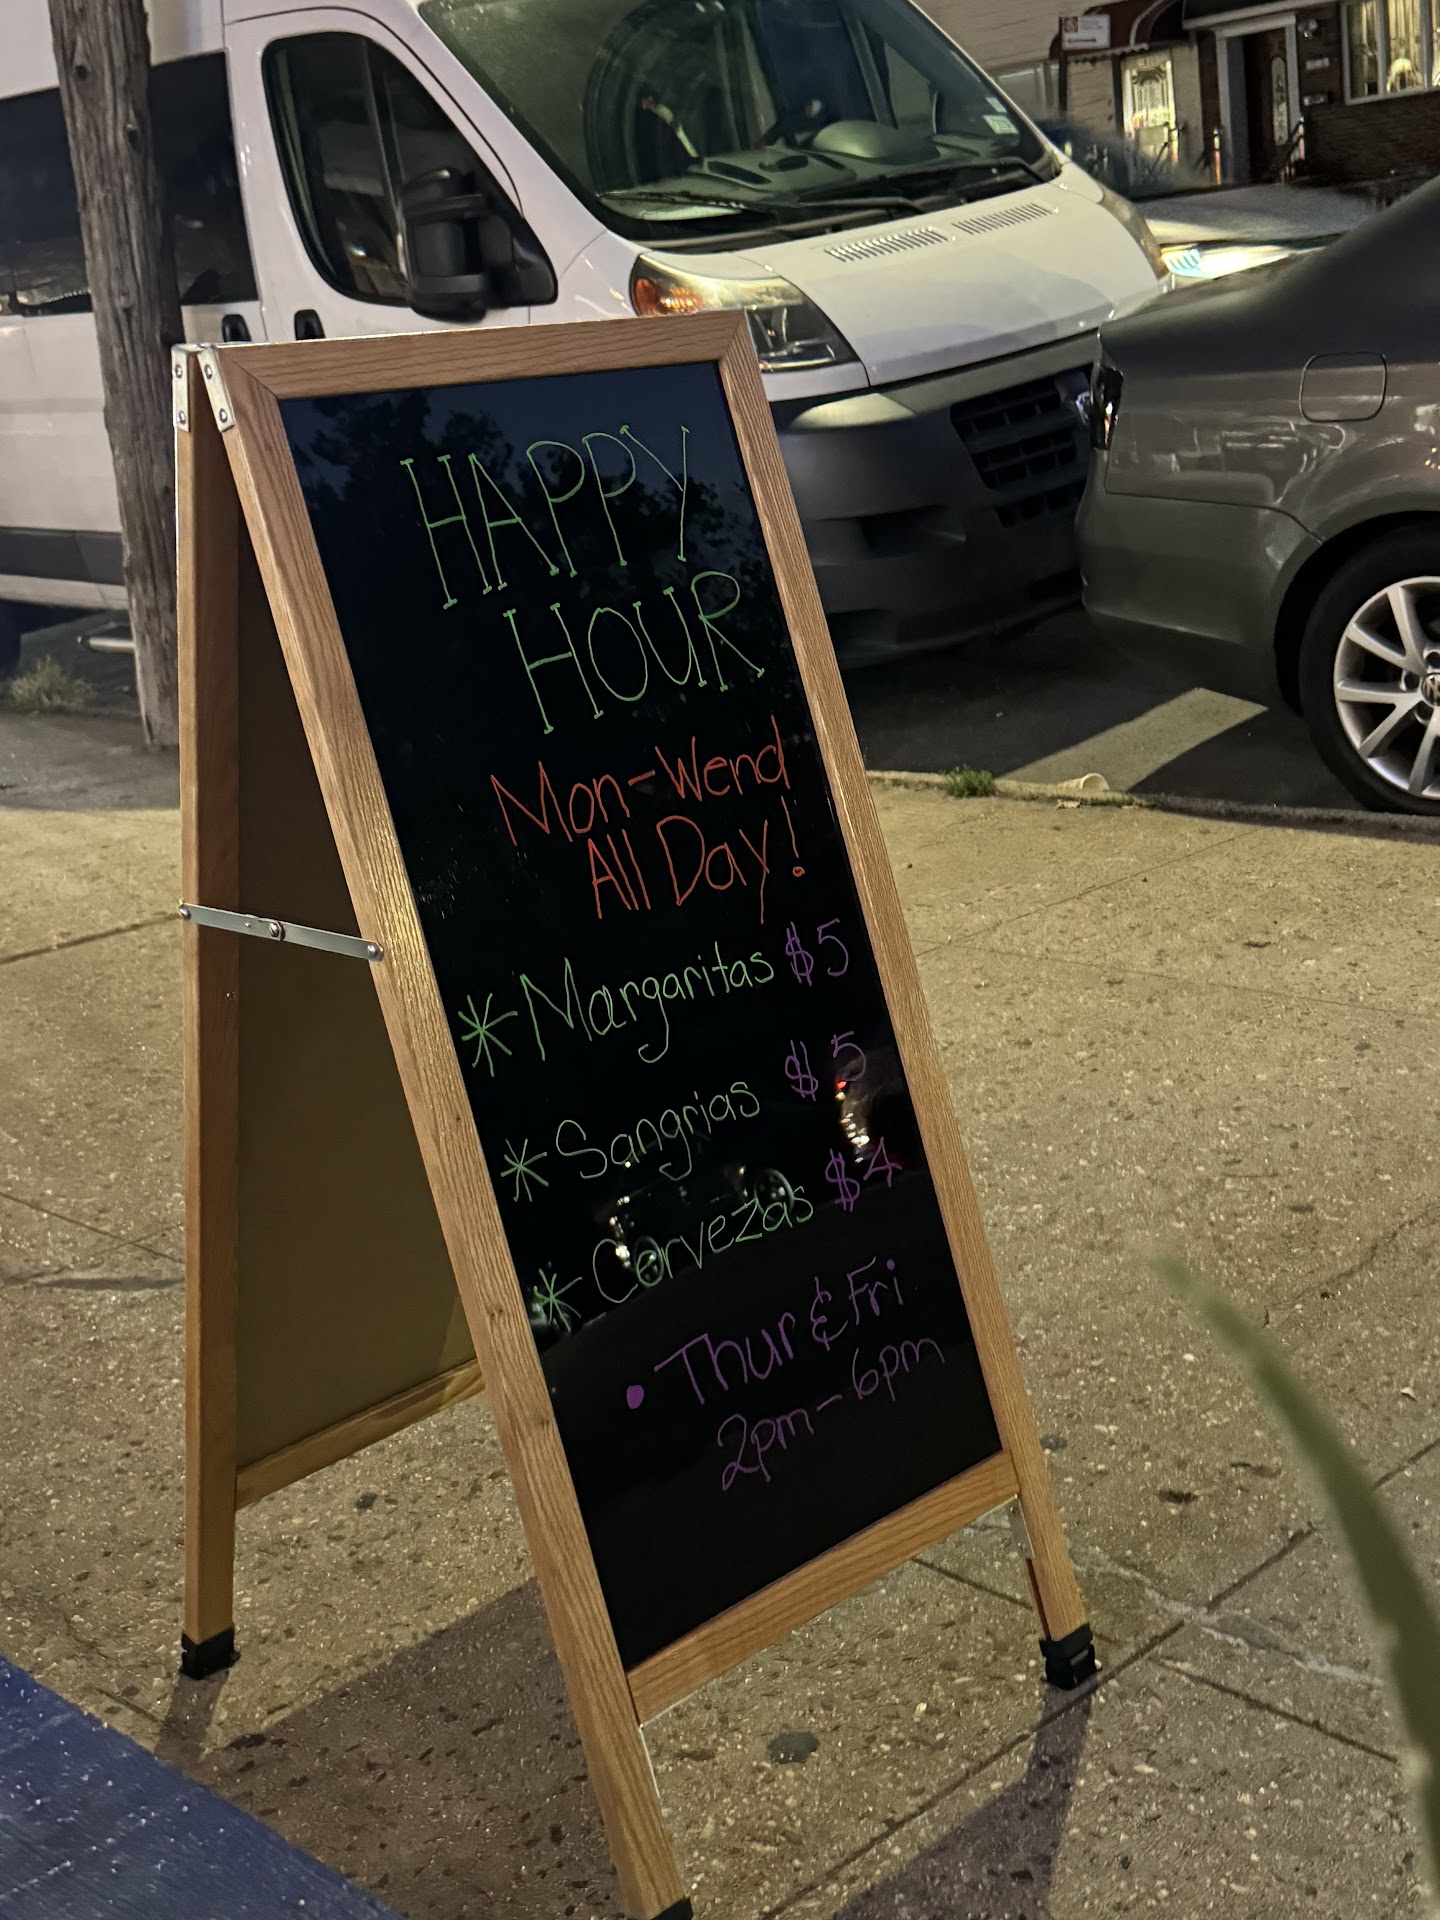 HAPPY
HOUR
Mon-Wend
All Day!
* Margaritas $5
* Sangrias $5
* Cervezas $4
• Thur & Fri
2pm-6pm